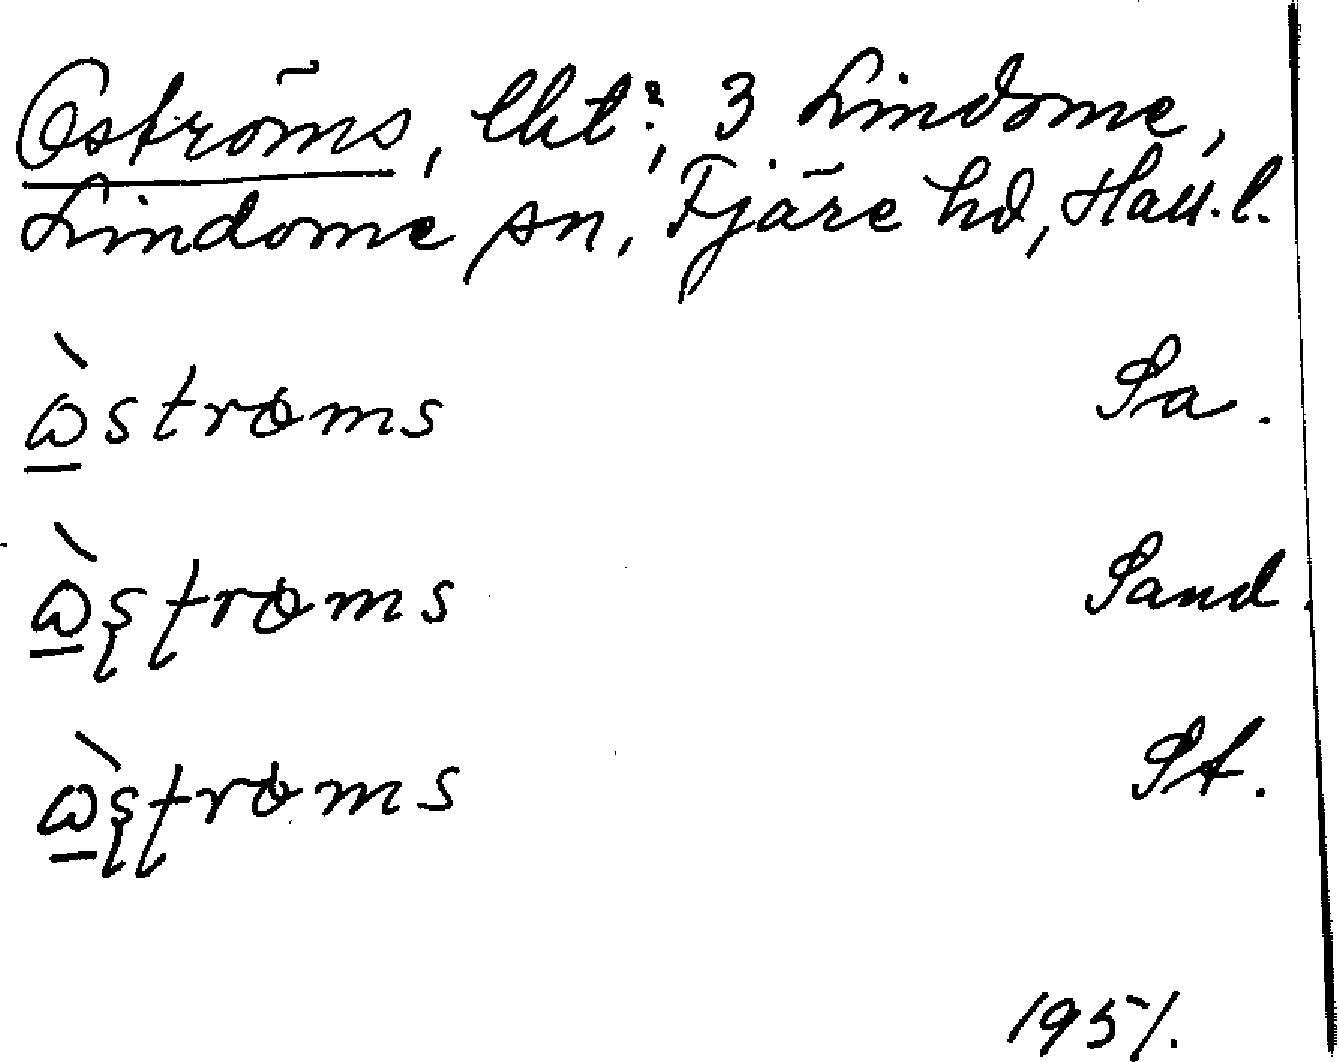 Oströms, lht?, 3 Lindome,
Lindome sn, Fjäre hd, Hall. l.
ὼströms Sa.
ὼşţrøms Sand.
ὼşţrøms St.
1951.